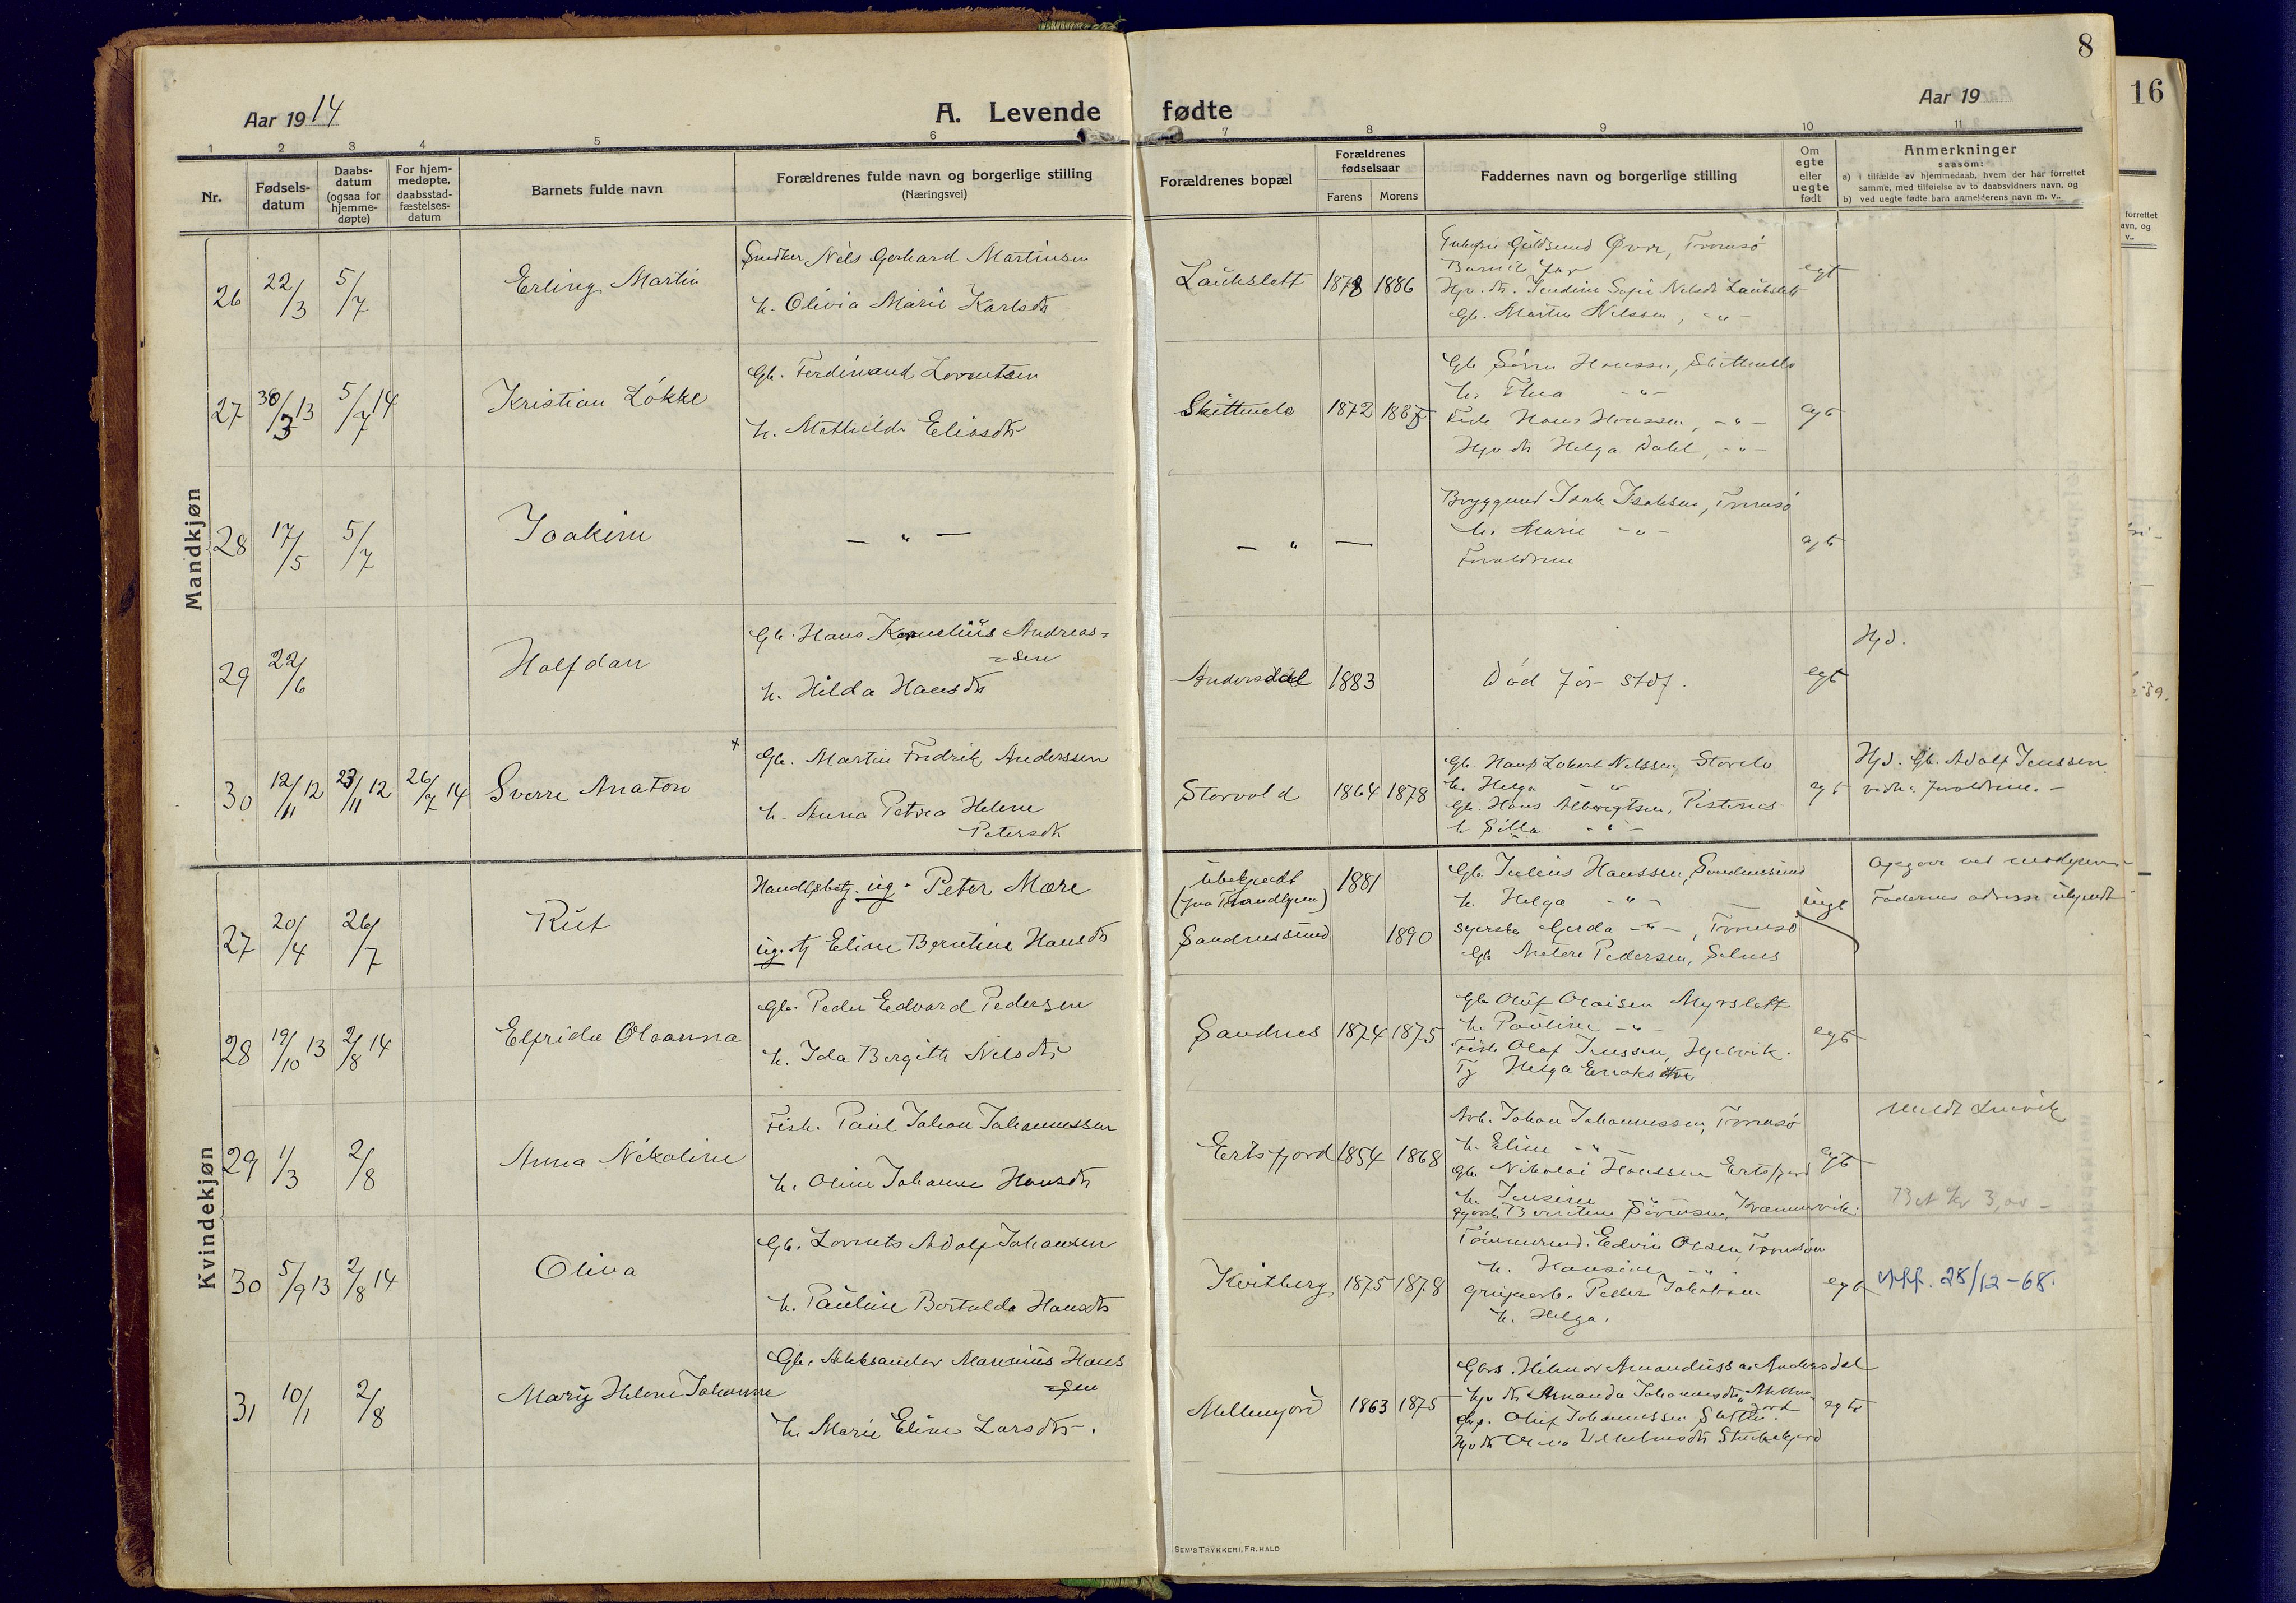 8
16
Aar 1914
A. Levende fødte
Aar 19
1 2 3 4 5 6 7 8 9 10 11
Nr.
Fødsels-datum
Daabs-datum (ogsaa for hjemme-døpte)
For hjem-medøpte, daabsstad-fæstelses-datum
Barnets fulde navn
Forældrenes fulde navn og borgerlige stilling
(Næringsvei)
Forældrenes bopæl
Forældrenes fødselsaar
Farens Morens
Faddernes navn og borgerlige stilling
Om egte eller uegte født
Anmerkninger
saasom:
a) i tilfælde av hjemmedaab, hvem der har forrettet
samme, med tilføielse av to daabsvidners navn, og
b) ved uegte fødte barn anmelderens navn m. v..
forrettet
avn, og
v..
Mandkjøn
26 22/3 5/7 Erling Martin
Snedker Nils Gerhard Martinsen
h. Olivia Marie Karlsdtr
Laukslett 1878 1886
Tromsø
Barnets far
Nilsdtr Laukslett
Gb. Martin Nilssen, -"-
egt
27 30/3 13 5/7 14 Kristian Løkke
Gb. Ferdinand Lorentsen
h. Mathilde Eliasdtr
Skittenelv 1872 1885
Gb Sören Hanssen, Skittenelv
h. Thea -"-
Fisk Hans Hanssen, -"-
Hjv dtr Helga Dahl, -"-
egt
28 17/5 5/7 Joakim
— " —
— " —
Bryggemd Isak Isaksen, Tromsø
h. Marie -"-
Forældrene
egt
29 22/6 Halfdan
Gb. Hans Kornelius Andreas=
=sen
h. Hilda Hansdtr
Andersdal 1883
Død før stdf.
egt
Hjd.
30 12/11 12 23/11 12 26/7 14 Sverre Anaton
Gb. Martin Fredrik Anderssen
h. Anna Petrea Helene
Petersdtr
Storvold 1864 1878
Gb. Hans Lobert Nilssen, Storelv
h. Helga -"-
Gb. Hans Albrigtsen, Pistenes
h Silla -"-
egt
Hjd. Gb. Adolf Jenssen
vidn. forældrene. -
Kvindekjøn
27 20/4 26/7 Rut
Handlsbetj. ug. Peter Mære
ug. tj Eline Berntine Hansdtr
ubekjendt 1881
(fra Trondhjem)
Sandnessund 1890
Gb. Julius Hanssen, Sandnessund
h. Helga -"-
syerske Gerda -"-, Tromsø
Gb Meters Pedersen, Selnes
uegt
Opgave ved
Faderens adresse ubekjendt
28 19/10 13 2/8 14 Elfrida Oleanna
Gb. Peder Edvard Pedersen
h. Ida Bergitte Nilsdtr
Sandnes 1874 1875
Gb Oluf Olaisen Myrslett
h. Pauline -"-
Fisk Olaf Jenssen, Hjelvik.
Tj Helga Eriksdtr
egt
29 1/3 2/8 Anna Nikoline
Fisk. Paul Johan Johannessen
h. Oline Johanne Hansdtr
Ertsfjord 1854 1868
Arb. Johan Johannessen, Tromsø
h. Eline -"-
Gb. Nikolai Hanssen Ertsfjord
h. Jensine -"-
Berntine Sörensen, Kvænnvik.
egt
Meldt Lenvik
Bet kr 3,00 -
30 5/9 13 2/8 14 Oliva
Gb. Lorents Adolf Johansen
h. Pauline Bertulda Hansdtr
Kvitberg 1875 1878
Tömmermd. Edvin Olsen, Tromsø
h. Hansine -"-
Peder Jakobsen
h. Helga.
egt
Utf. 28/12-68.
31 10/1 2/8 Mary Helene Johanne
Gb. Aleksander Marenius Hans
=sen
h. Marie Eline Larsdtr.
Mellemjord 1863 1875
Gbrs. Hilmar Amandussen Andersdal
Hjv dtr Amanda Johannesdtr, Mellem-
jord
Oluf Johannessen Sletten.
Hjv dtr Vilhelmsdtr Stukkekjerd
egte
SEM'S TRYKKERI, FR. HALD